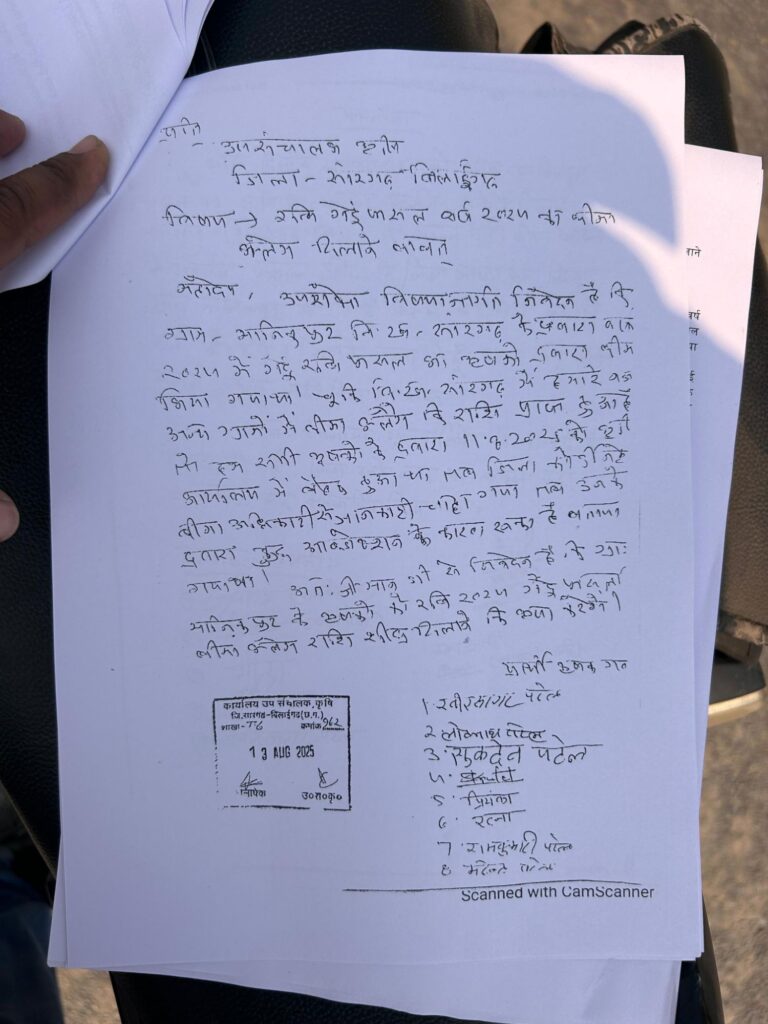 प्रति
उपसंचालक कृषि
जिला - सारंगढ़ बिलाईगढ़
विषय → रबि गेहूं फसल वर्ष २०२५ का बीमा
क्लेम दिलाने बाबत्
महोदय, उपरोक्त विषयांतर्गत निवेदन है कि
ग्राम - मानिकपुर वि.ख. सारंगढ़ के द्वारा
२०२५ में गेहूं रबि फसल का कृषको द्वारा बीमा
किया गया था। चूंकि वि.ख. सारंगढ़ में हमारे
अन्य ग्रामों में बीमा क्लेम कि राशि प्राप्त हुआ है
हम सभी कृषको के द्वारा 11.8.2025 को कृषि
कार्यालय में बैठक हुआ था तब जिला
बीमा अधिकारी से जानकारी चाहा गया तब उनके
द्वारा कुछ के कारण रूका है बताया
गया था।
अतः श्रीमान जी से निवेदन है कि ग्राः
मानिकपुर के कृषको को रबि २०२५ गेहूं फसल
बीमा क्लेम राशि शीघ्र दिलाने कि कृपा करेंगे।
प्रार्थी कृषक गन
1. पटेल
2. लोकनाथ पटेल
3. शुकदेव पटेल
4.
5. प्रियंका
6. रत्ना
7. रामकुमारी पटेल
8 पटेल
कार्यालय उप संचालक, कृषि
जि. सारंगढ़-बिलाईगढ़ (छ.ग.)
शाखा - T-6 क्रमांक 962
13 AUG 2025
लिपिक उ०सं०कृ०
Scanned with CamScanner
वाने
वर्ष